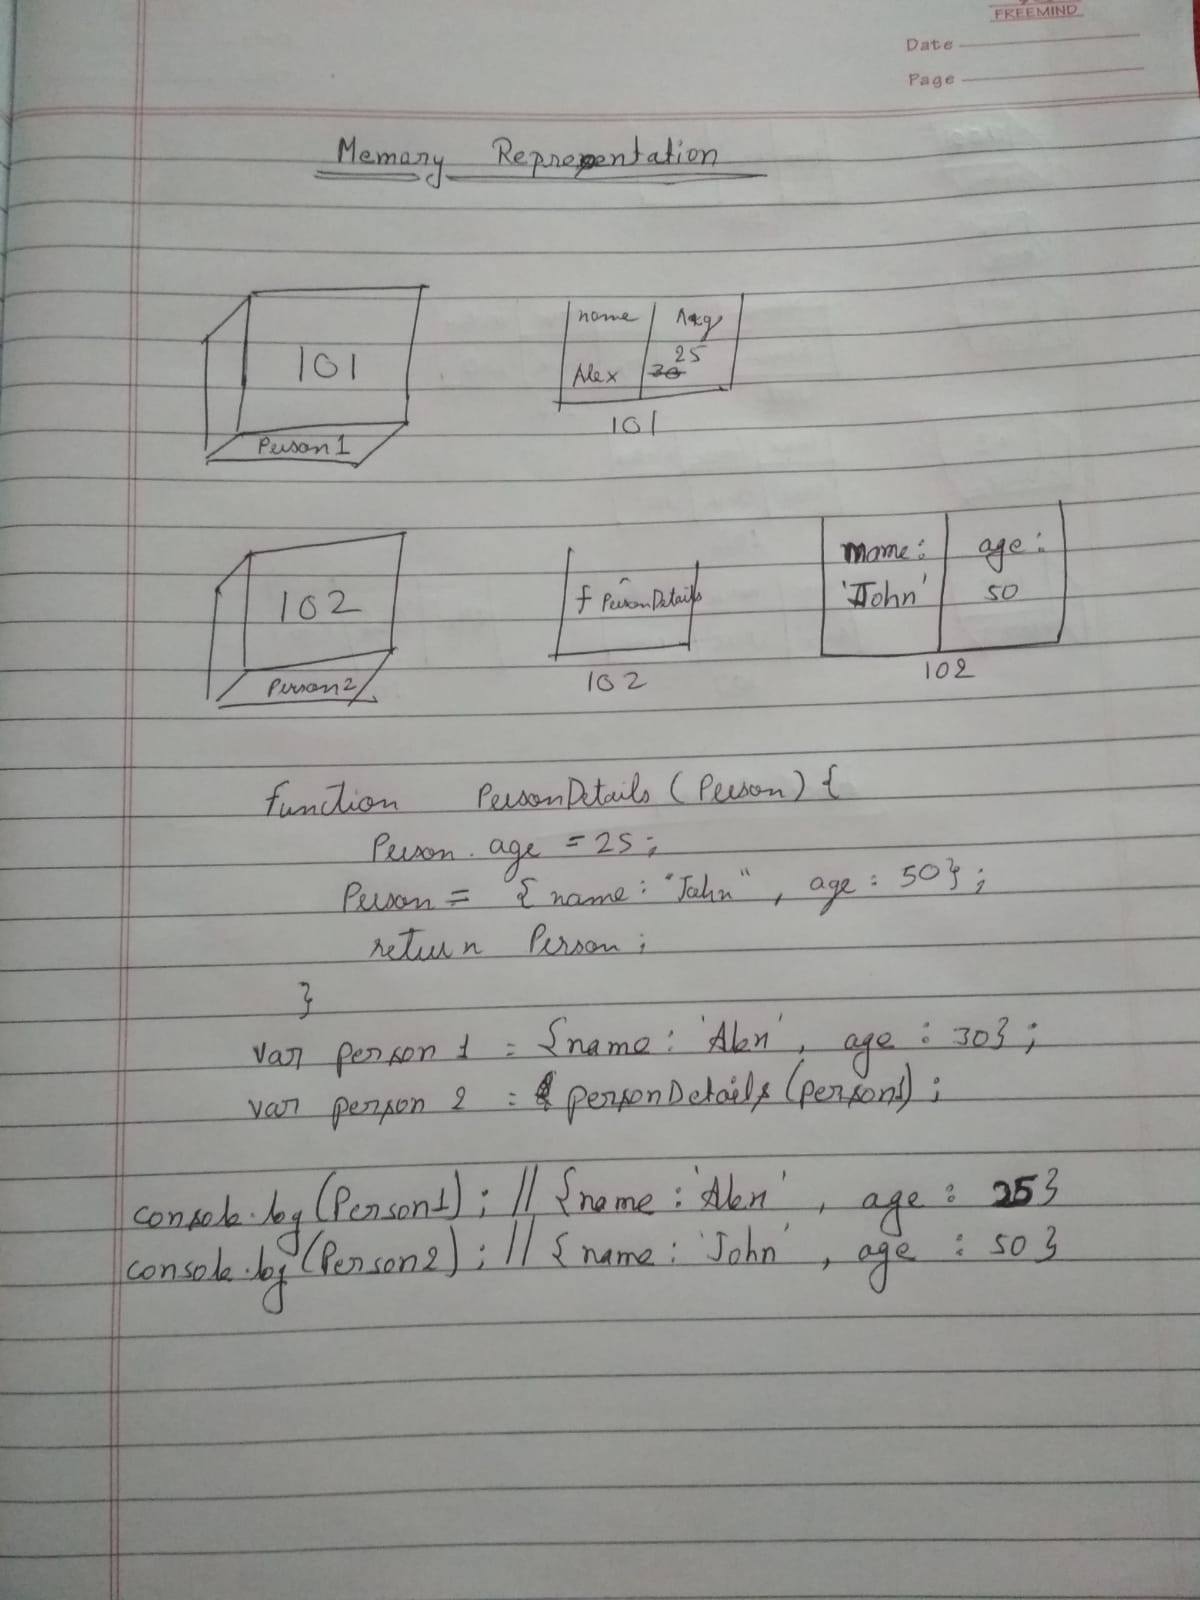 FREEMIND
Date
Page
Memary Representation
101
Person1
name
Alex
25
30
101
102
Person2
f PersonDetails
102
name:
age:
'John'
50
102
function PersonDetails (Person) {
Person. age = 25;
Person = { name: "John", age: 50};
return Person;
}
var person 1 = {name: 'Alex', age : 30};
var person 2 = personDetails (person1);
console.log(Person1); // {name : 'Alex', age : 25}
console.log(Person2); // { name : 'John', age : 50}